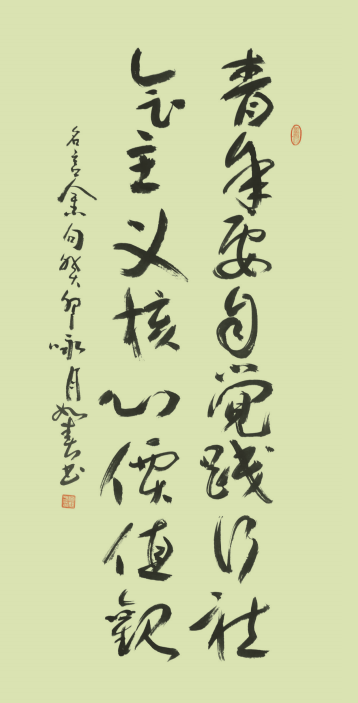 青年要自觉践行社
会主义核心價值觀
名言金句癸卯咏月如春书